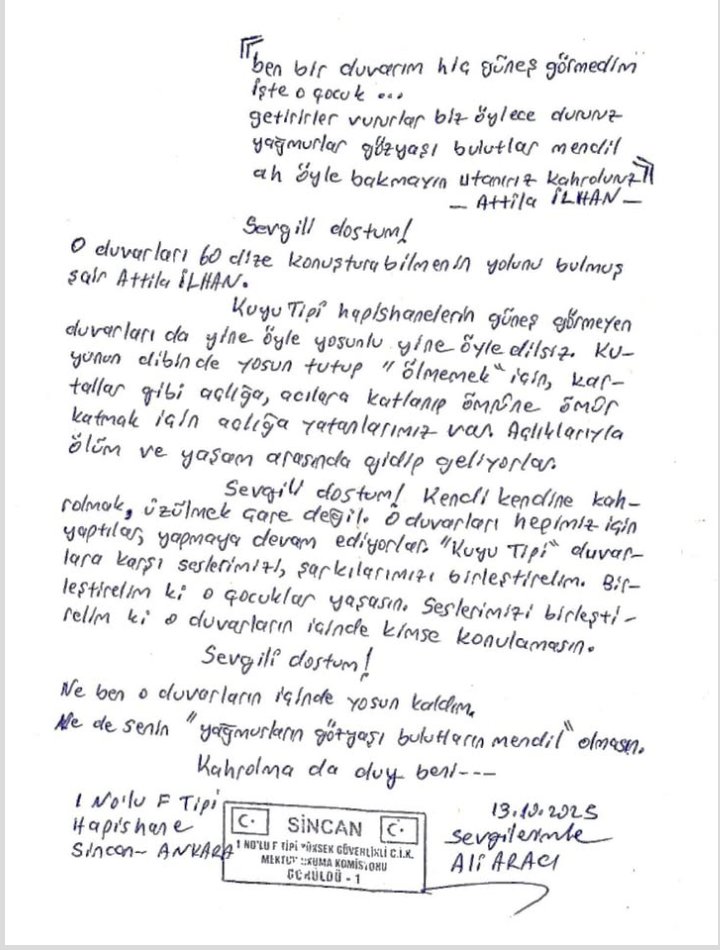 "ben bir duvarım hiç güneş görmedim
işte o çocuk ...
getirirler vururlar biz öylece dururuz
yağmurlar gözyaşı bulutlar mendil
ah öyle bakmayın utanırız kahroluruz"
— Attila İLHAN —
Sevgili dostum!
O duvarları 60 dize konuşturabilmenin yolunu bulmuş
şair Attila İLHAN.
Kuyu Tipi hapishanelerin güneş görmeyen
duvarları da yine öyle yosunlu yine öyle dilsiz. Ku-
yunun dibinde yosun tutup "ölmemek" için, kar-
tallar gibi açlığa, acılara katlanıp ömrüne ömür
katmak için açlığa yatanlarımız var. Açlıklarıyla
ölüm ve yaşam arasında gidip geliyorlar.
Sevgili dostum! Kendi kendine kah-
rolmak, üzülmek çare değil. O duvarları hepimiz için
yaptılar, yapmaya devam ediyorlar. "Kuyu Tipi" duvar-
lara karşı seslerimizi, şarkılarımızı birleştirelim. Bir-
leştirelim ki o çocuklar yaşasın. Seslerimizi birleşti-
relim ki o duvarların içinde kimse konulamasın.
Sevgili dostum!
Ne ben o duvarların içinde yosun kaldım.
Ne de senin "yağmurların gözyaşı bulutların mendil" olmasın.
Kahrolma da duy beni---
1 No'lu F Tipi
Hapishane
Sincan- ANKARA
SİNCAN
1 NO'LU F TİPİ YÜKSEK GÜVENLİKLİ C.İ.K.
MEKTUP OKUMA KOMİSYONU
GÖRÜLDÜ - 1
13.10.2025
Sevgilerimle
Ali ARACI